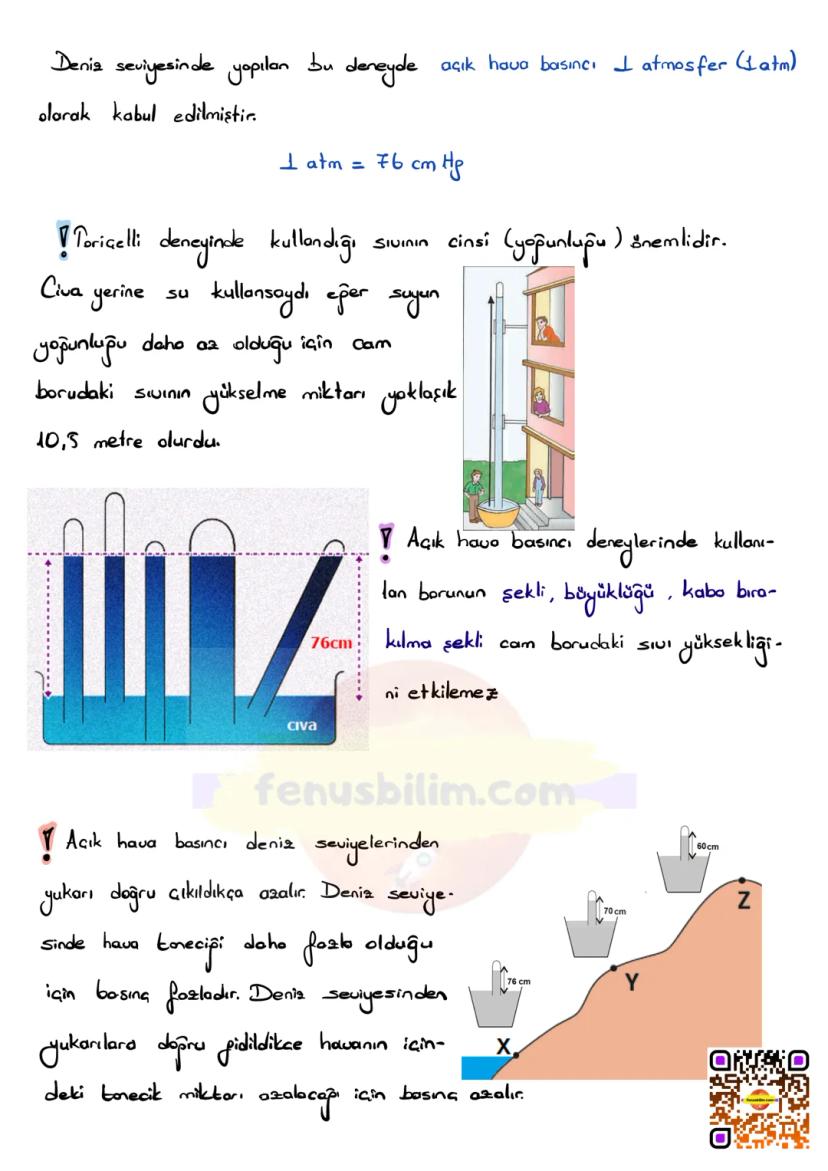 Deniz seviyesinde yapılan bu deneyde açık hava basıncı 1 atmosfer (1 atm)
olarak kabul edilmiştir.
1 atm = 76 cm Hg
! Toriçelli deneyinde kullandığı sıvının cinsi (yoğunluğu) önemlidir.
Civa yerine su kullansaydı eğer suyun
yoğunluğu daha az olduğu için cam
borudaki sıvının yükselme miktarı yaklaşık
10,5 metre olurdu.
76cm
cıva
! Açık hava basıncı deneylerinde kullanı-
lan borunun şekli, büyüklüğü, kaba bıra-
kılma şekli cam borudaki sıvı yüksekliği-
ni etkilemez
fenusbilim.com
! Açık hava basıncı deniz seviyelerinden
yukarı doğru çıkıldıkça azalır. Deniz seviye-
sinde hava taneciği daha fazla olduğu
için basınç fazladır. Deniz seviyesinden
yukarılara doğru gidildikçe havanın için-
deki tanecik miktarı azalacağı için basınç azalır.
60 cm
Z
70 cm
Y
76 cm
X
fenusbilim.com